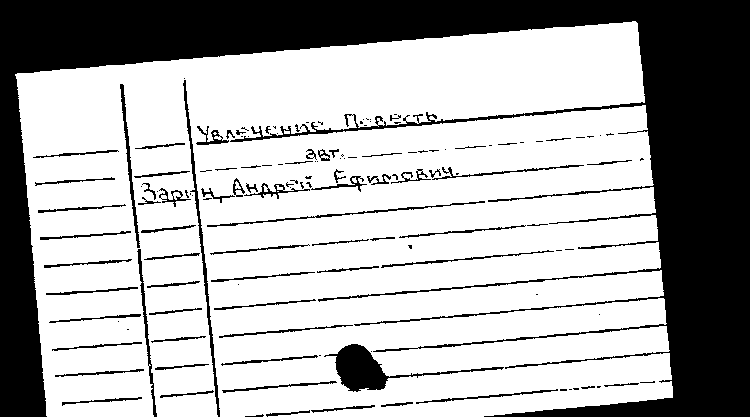 Увлечение. Повесть.
авт.
Зарин, Андрей Ефимович.